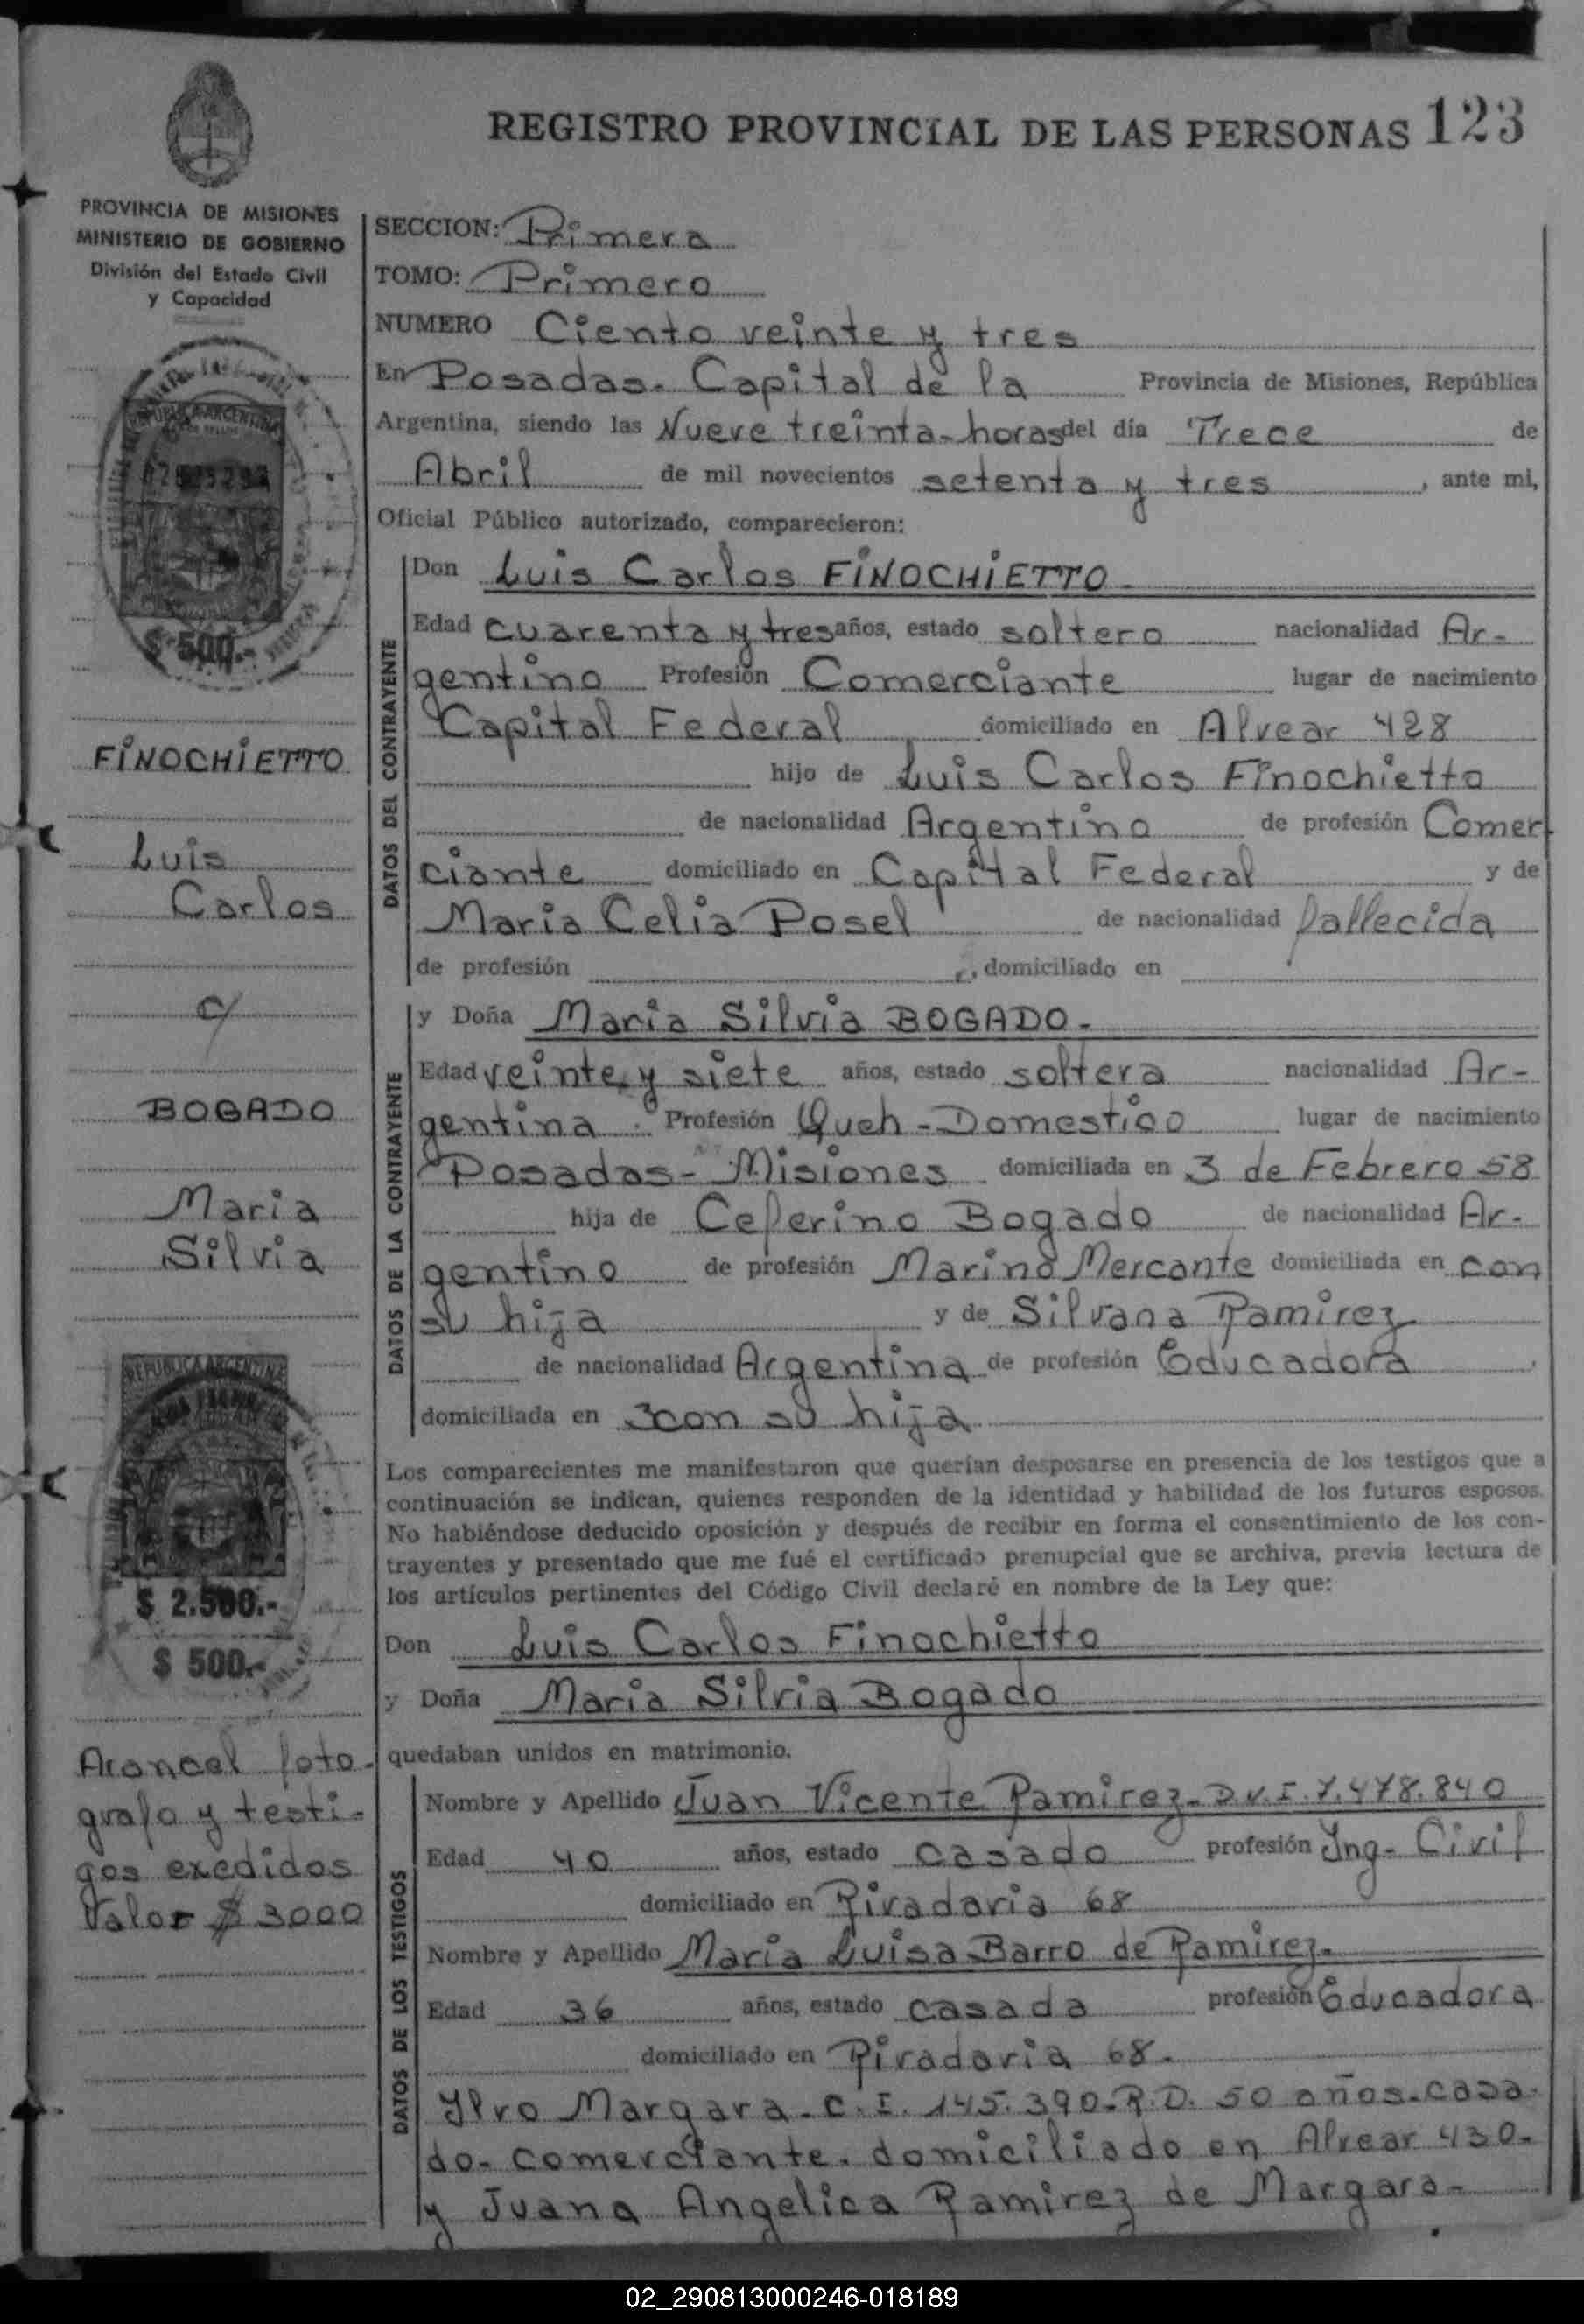 REGISTRO PROVINCIAL DE LAS PERSONAS 123
PROVINCIA DE MISIONES
MINISTERIO DE GOBIERNO
División del Estado Civil
y Capacidad
SECCION: Primera
TOMO: Primero
NUMERO Ciento veinte y tres
En Posadas. Capital de la Provincia de Misiones, República
Argentina, siendo las Nueve treinta-horas del día Trece de
Abril de mil novecientos setenta y tres, ante mi,
Oficial Público autorizado, comparecieron:
REPUBLICA ARGENTINA
$ 500.-
FINOCHIETTO
Luis
Carlos
c/
BOGADO
Maria
Silvia
REPUBLICA ARGENTINA
$ 2.500.-
$ 500.-
Arancel foto-
grafo y testi-
gos exedidos
Valor $ 3000
DATOS DEL CONTRAYENTE
Don Luis Carlos FINOCHIETTO-
Edad cuarenta y tres años, estado soltero nacionalidad Ar-
gentino Profesión Comerciante lugar de nacimiento
Capital Federal domiciliado en Alvear 428
hijo de Luis Carlos Finochietto
de nacionalidad Argentino de profesión Comer
ciante domiciliado en Capital Federal y de
Maria Celia Posel de nacionalidad fallecida
de profesión , domiciliado en
DATOS DE LA CONTRAYENTE
y Doña Maria Silvia BOGADO-
Edad veinte y siete años, estado soltera nacionalidad Ar-
gentina. Profesión Queh-Domestico lugar de nacimiento
Posadas- Misiones domiciliada en 3 de Febrero 58
hija de Ceferino Bogado de nacionalidad Ar-
gentino de profesión Marino Mercante domiciliada en con
su hija y de Silvana Ramirez
de nacionalidad Argentina de profesión Educadora
domiciliada en con su hija
Los comparecientes me manifestaron que querían desposarse en presencia de los testigos que a
continuación se indican, quienes responden de la identidad y habilidad de los futuros esposos.
No habiéndose deducido oposición y después de recibir en forma el consentimiento de los con-
trayentes y presentado que me fué el certificado prenupcial que se archiva, previa lectura de
los artículos pertinentes del Código Civil declaré en nombre de la Ley que:
Don Luis Carlos Finochietto
y Doña Maria Silvia Bogado
quedaban unidos en matrimonio.
DATOS DE LOS TESTIGOS
Nombre y Apellido Juan Vicente Ramirez- D.N.I. 7.478.840
Edad 40 años, estado casado profesión Ing- Civil
domiciliado en Rivadaria 68
Nombre y Apellido Maria Luisa Barro de Ramirez-
Edad 36 años, estado casada profesión Educadora
domiciliado en Rivadaria 68.
Ylvo Margara. C.I. 145.390-P.D. 50 años-casa-
do- comerciante. domiciliado en Alvear 430-
y Juana Angelica Ramirez de Margara-
02_290813000246-018189